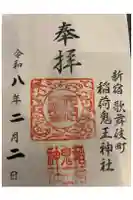 奉拝
新宿歌舞伎町
稲荷鬼王神社
令和八年二月二日